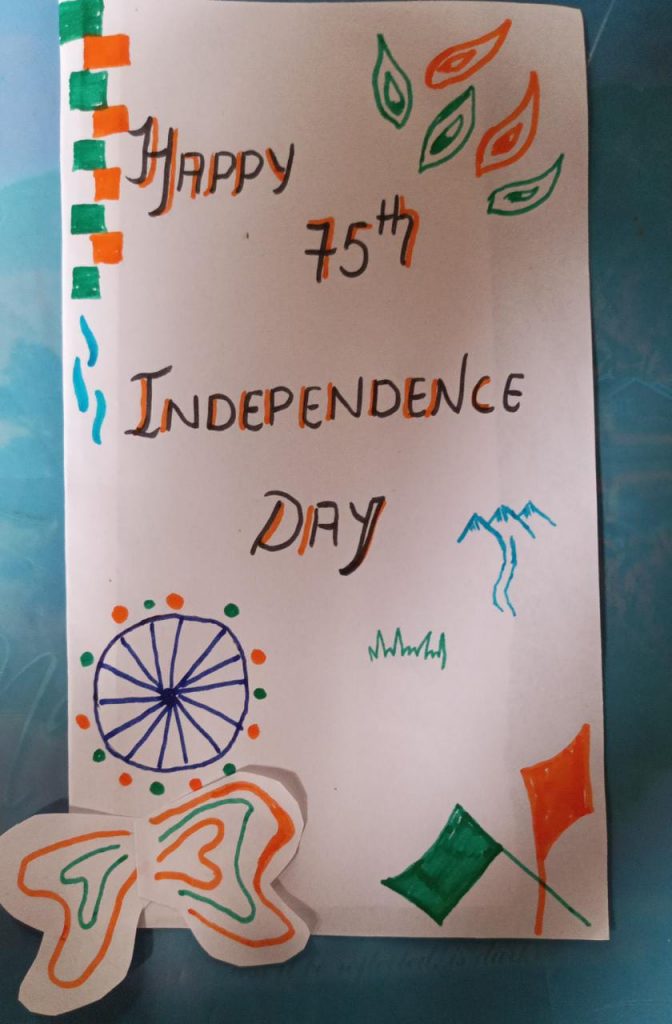 HAPPY
75th
INDEPENDENCE
DAY